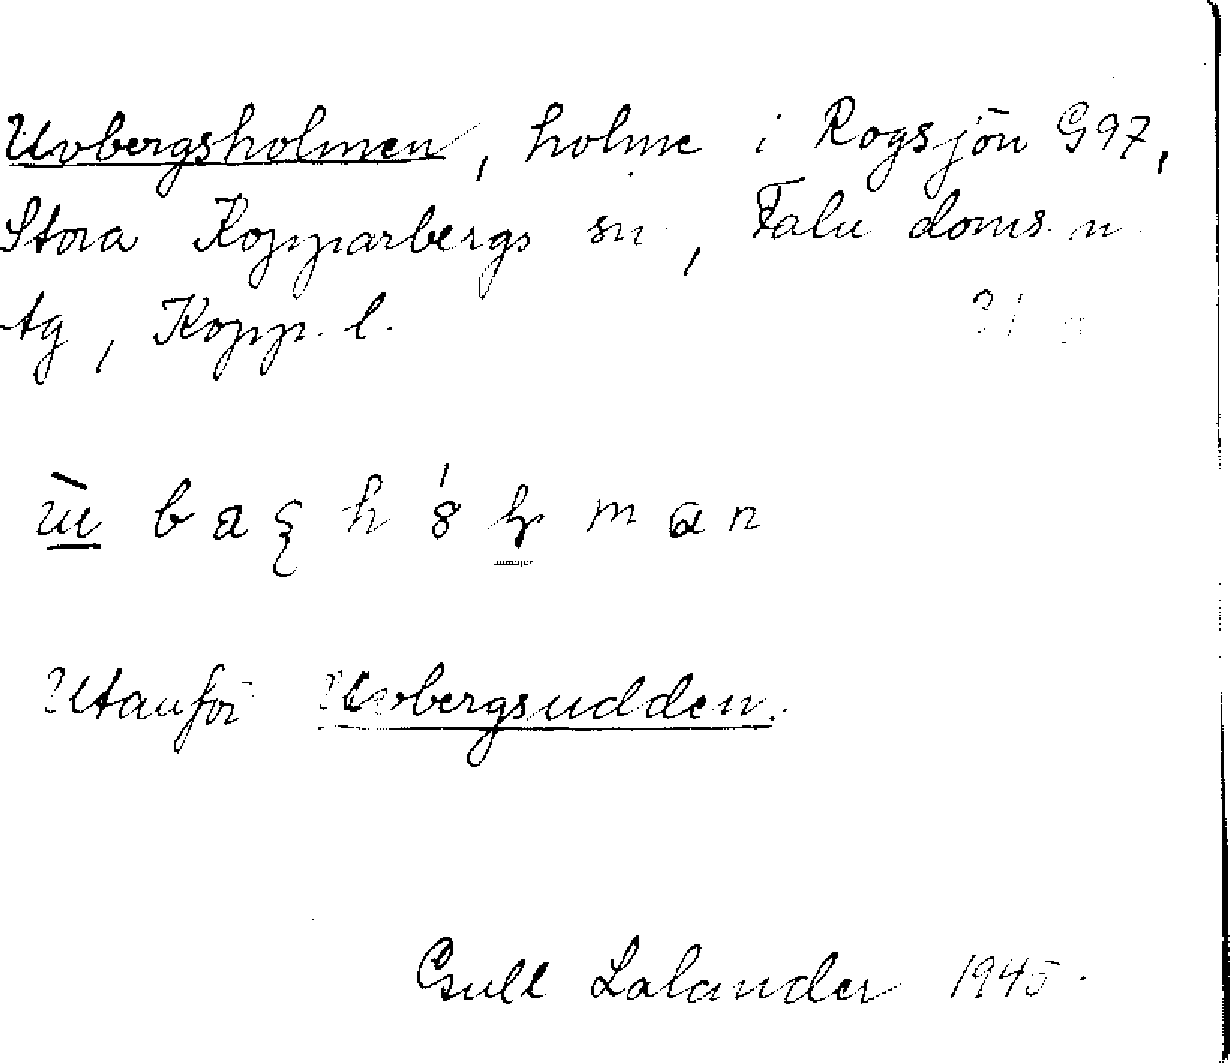 Uvbergsholmen, holme i Rogsjön G97,
Stora Kopparbergs sn, Falu doms. n
tg, Kopp. l.
Utanför Uvbergsudden.
Gull Lalander 1945.